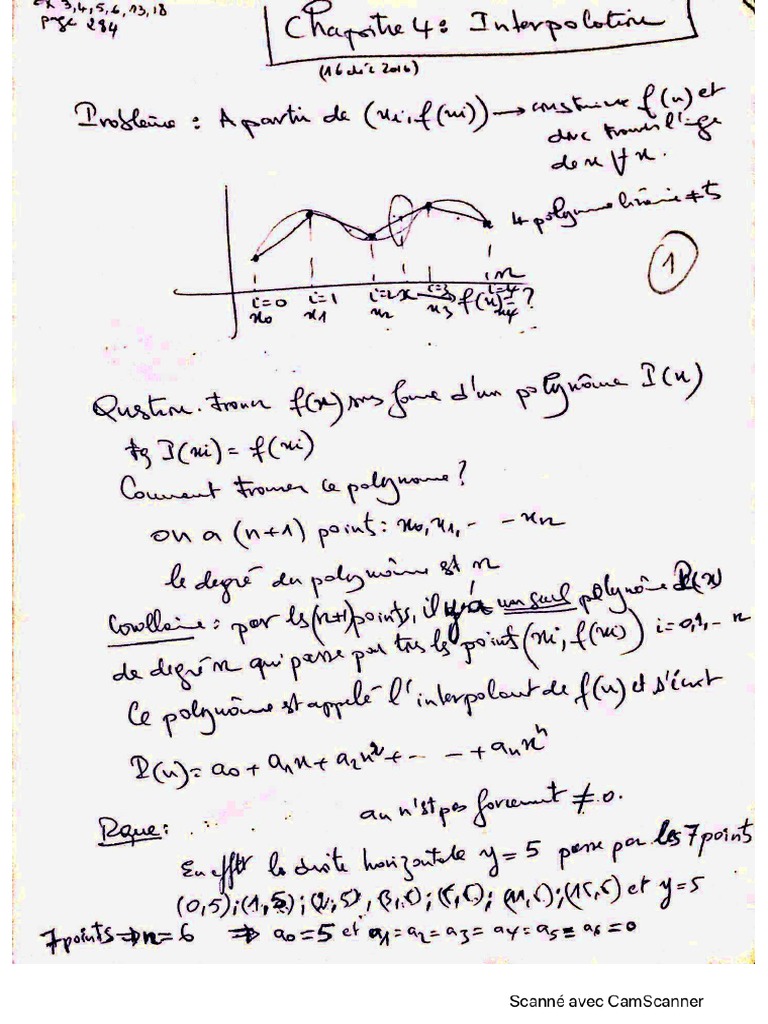 Ex 3,4,5,6,13,18
page 284
Chapitre 4: Interpolation
(16 déc 2016)
Problème : A partir de (xi, f(xi)) → construire f(x) et
donc trouver l'image
de x ∀ x.
4 polynome linéaire ≠ts
1
i=0 i=1 i=2 x i=3 i=4
x0 x1 x2 x3 f(x)=? x4
Question. trouver f(x) sous forme d'un polynôme P(x)
tq P(xi) = f(xi)
Comment trouver ce polynome?
on a (n+1) point: x0, x1, - - xn
le degré du polynôme est n
Corollaire: par les (n+1) points, il y a un seul polynôme P(x)
de degré n qui passe par ts les point (xi, f(xi)) i=0,1,- n
Ce polynôme est appelé l'interpolant de f(x) et s'écrit
P(x) = a0 + a1x + a2x² + - - - + anxⁿ
Rque: an n'est pas forcément ≠ 0.
En effet la droite horizontale y = 5 passe par les 7 points
(0,5); (1,5); (2,5), et y=5
7 points ⇒ n= 6 ⇒ a0 = 5 et a1 = a2 = a3 = a4 = a5 = a6 = 0
Scanné avec CamScanner